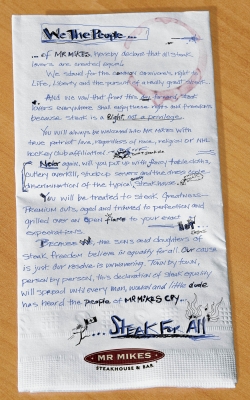 We The People...
... of MR MIKES, hereby declare that all steak
lovers are created equal.
We stand for the common carnivore's right to
Life, Liberty and the pursuit of a really great steak.
And we vow that from this day forward, steak
lovers everywhere shall enjoy these rights and freedoms
because steak is a Right not a privilege.
You will always be welcomed into MR MIKES with
true patriot love, regardless of race, religion or NHL
hockey club affiliation.
Never again, will you put up with fancy table cloths,
cutlery overkill, stuck-up servers and the dress code
discrimination of the typical Steakhouse.
You will be treated to steak Greatness-
Premium cuts, aged and trimmed to perfection and
grilled over an open flame to your exact
expectations.
HOT
Because We, the sons and daughters of
steak freedom believe in quality for all. Our cause
is just. Our resolve is unwavering. Town by town,
person by person, this declaration of steak equality
will spread until every man, woman and little dude
has heard the people of MR MIKES CRY...
... Steak For All
MR MIKES
STEAKHOUSE & BAR